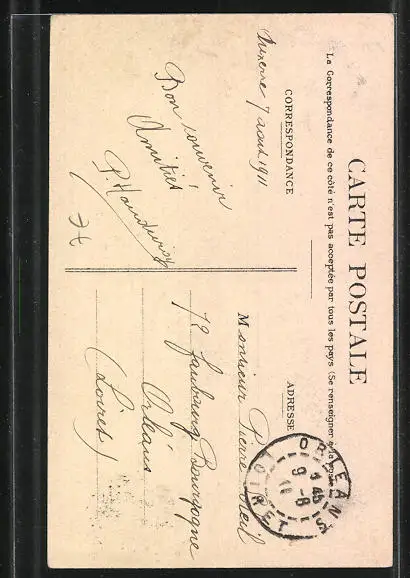 CARTE POSTALE
La Correspondance de ce côté n'est pas acceptée par tous les pays (Se renseigner à la poste)
CORRESPONDANCE
Auxerre 7 août 1911
Bon souvenir
Amitiés
ADRESSE
Monsieur Pierre
72 faubourg Bourgogne
Orléans
(Loiret)
ORLEANS
1 45
9 -8
11
LOIRET